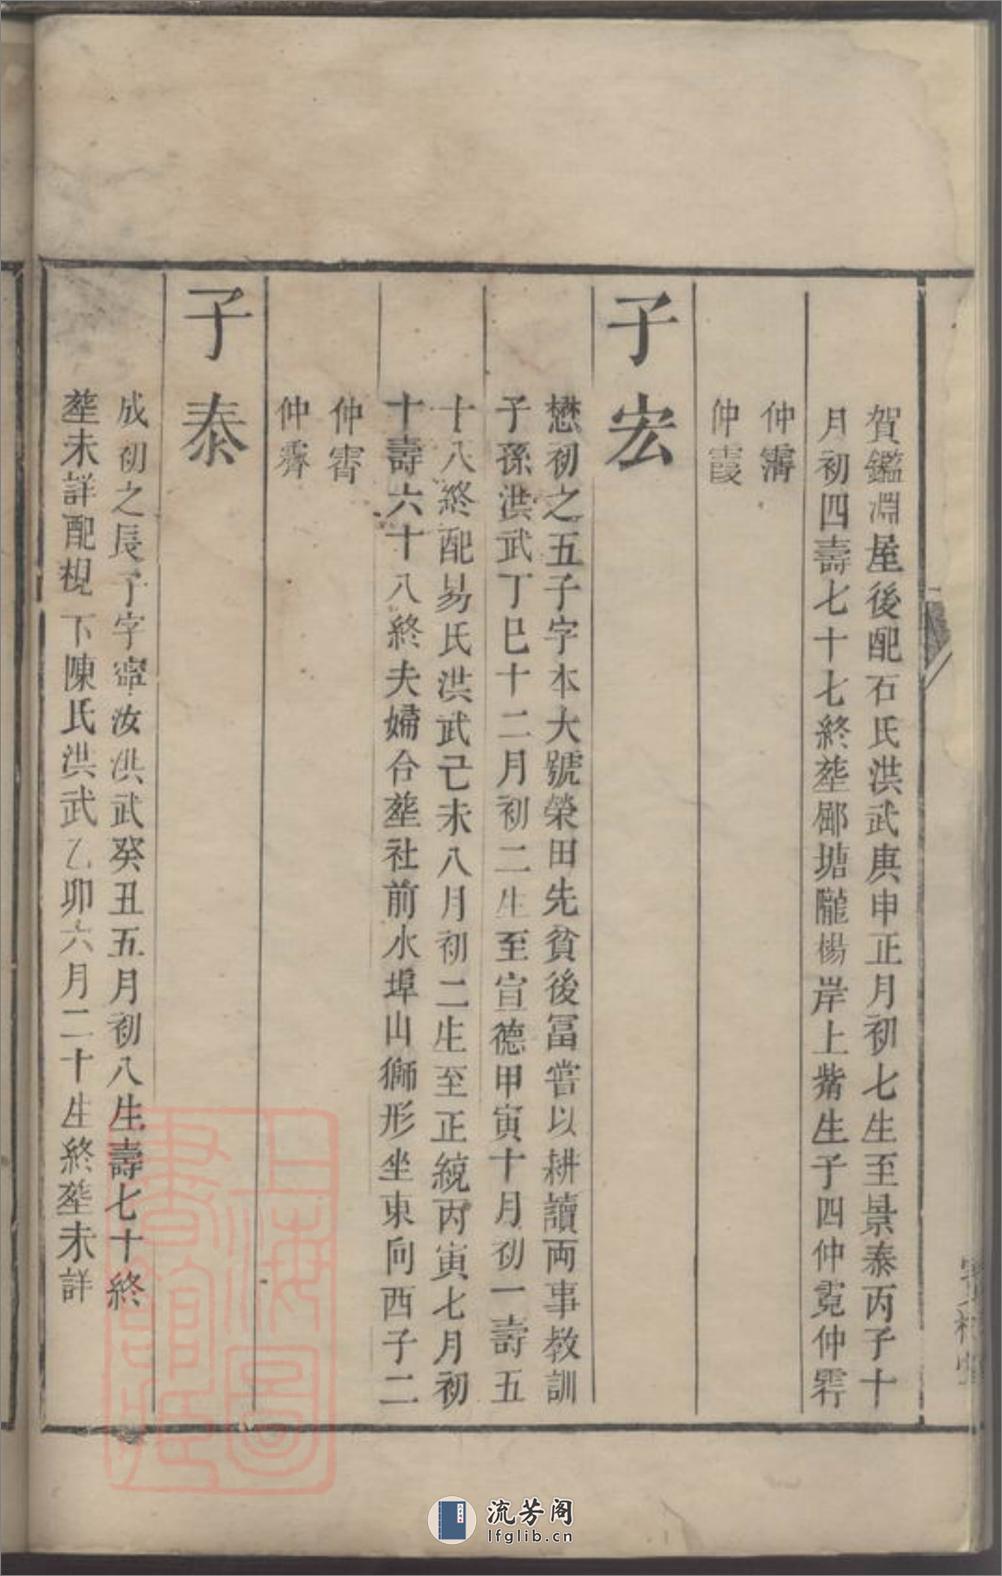 賀鑑淵屋後配石氏洪武庚申正月初七生至景泰丙子十
月初四壽七十七終塟鄮塘隴楊岸上觜生子四仲霓仲霁
仲霶
仲霞
子宏
懋初之五子字本大號榮田先貧後冨嘗以耕讀兩事教訓
子孫洪武丁巳十二月初二生至宣德甲寅十月初一壽五
十八終配易氏洪武己未八月初二生至正統丙寅七月初
十壽六十八終夫婦合塟社前水埠山獅形坐東向西子二
仲霄
仲霽
子泰
成初之長子字寧汝洪武癸丑五月初八生壽七十終
塟未詳配梘下陳氏洪武乙卯六月二十生終塟未詳
上海圖
書館藏
流芳阁
lfglib.cn